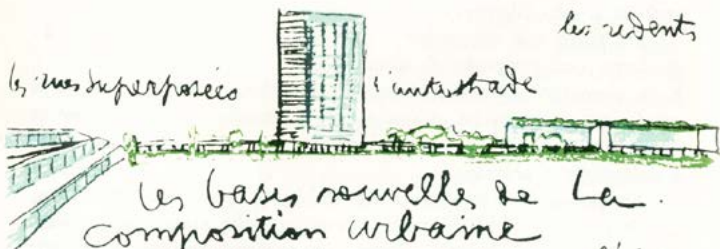 les redents
les rues superposées
l'autostrade
les bases nouvelles de la
composition urbaine